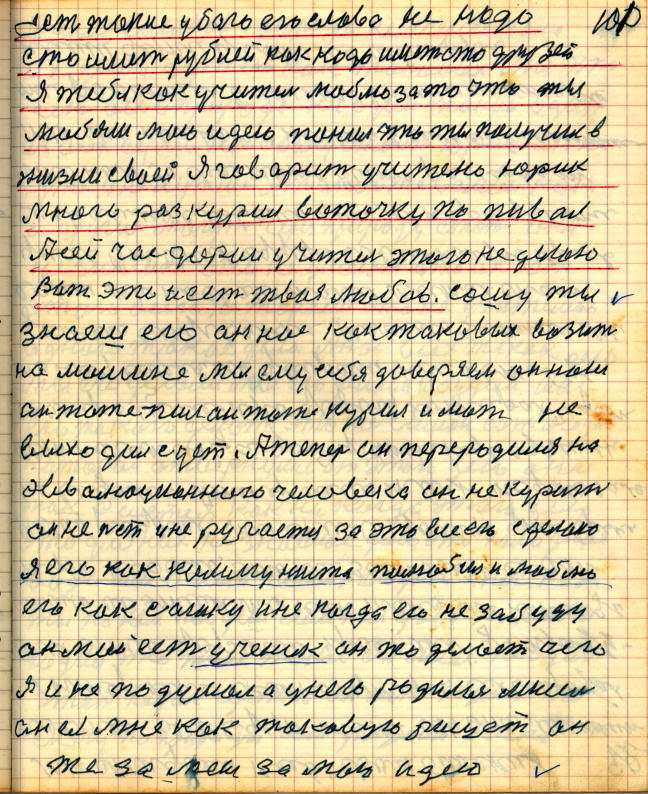 ест такие у бога его слова не надо 101
сто имит рублей как надо имит сто друзей
Я тебя как учител люблю за то что ты
мою идею понял что ты получил в
жизни своей Я говорит учителю Юрик
много раз курил водочку по пивал
А сей час дорогой учител этого не делаю
Вот это и ест твоя любов. сашу ты
знаеш его он нас как таковых возит
на машине мы ему себя доверяем он наш
он тоже пил он тоже курил и мат не
выходил с рет. А тепер он переродился на
эвалюционного человека он не курит
он не пет и не ругается за это все его сделало
я его как комунista полюбил и люблю
его как сашку и не когда его не забуду
он мой ест ученик он то делает чего
Я и не подумал а у него родилася мысл
он ей мне как таковую рисует он
же за меня за мою идею